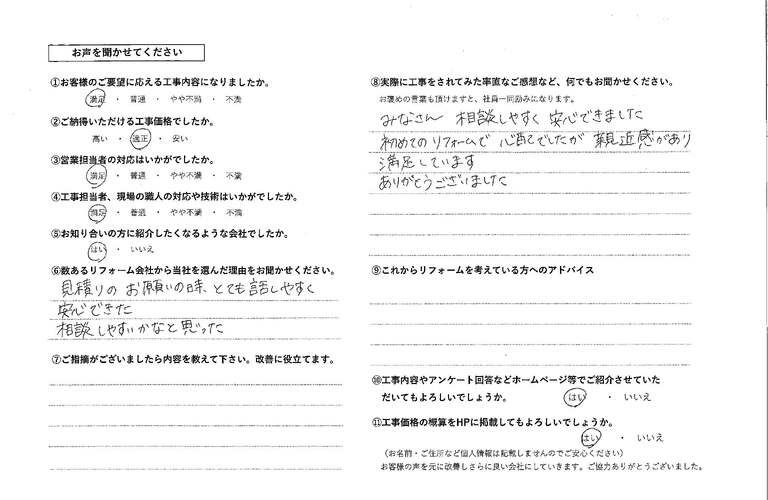 お声を聞かせてください
①お客様のご要望に応える工事内容になりましたか。
満足 ・ 普通 ・ やや不満 ・ 不満
②ご納得いただける工事価格でしたか。
高い ・ 適正 ・ 安い
③営業担当者の対応はいかがでしたか。
満足 ・ 普通 ・ やや不満 ・ 不満
④工事担当者、現場の職人の対応や技術はいかがでしたか。
満足 ・ 普通 ・ やや不満 ・ 不満
⑤お知り合いの方に紹介したくなるような会社でしたか。
はい ・ いいえ
⑥数あるリフォーム会社から当社を選んだ理由をお聞かせください。
見積りの お願いの時、とても話しやすく
安心できた
相談しやすいかなと思った
⑦ご指摘がございましたら内容を教えて下さい。改善に役立てます。
⑧実際に工事をされてみた率直なご感想など、何でもお聞かせください。
お褒めの言葉も頂けますと、社員一同励みになります。
みなさん 相談しやすく 安心できました
初めてのリフォームで 心配でしたが 親近感があり
満足しています
ありがとうございました
⑨これからリフォームを考えている方へのアドバイス
⑩工事内容やアンケート回答などホームページ等でご紹介させていた
だいてもよろしいでしょうか。 はい ・ いいえ
⑪工事価格の概算をHPに掲載してもよろしいでしょうか。
はい ・ いいえ
（お名前・ご住所など個人情報は記載しませんのでご安心ください）
お客様の声を元に改善しさらに良い会社にしていきます。ご協力ありがとうございました。